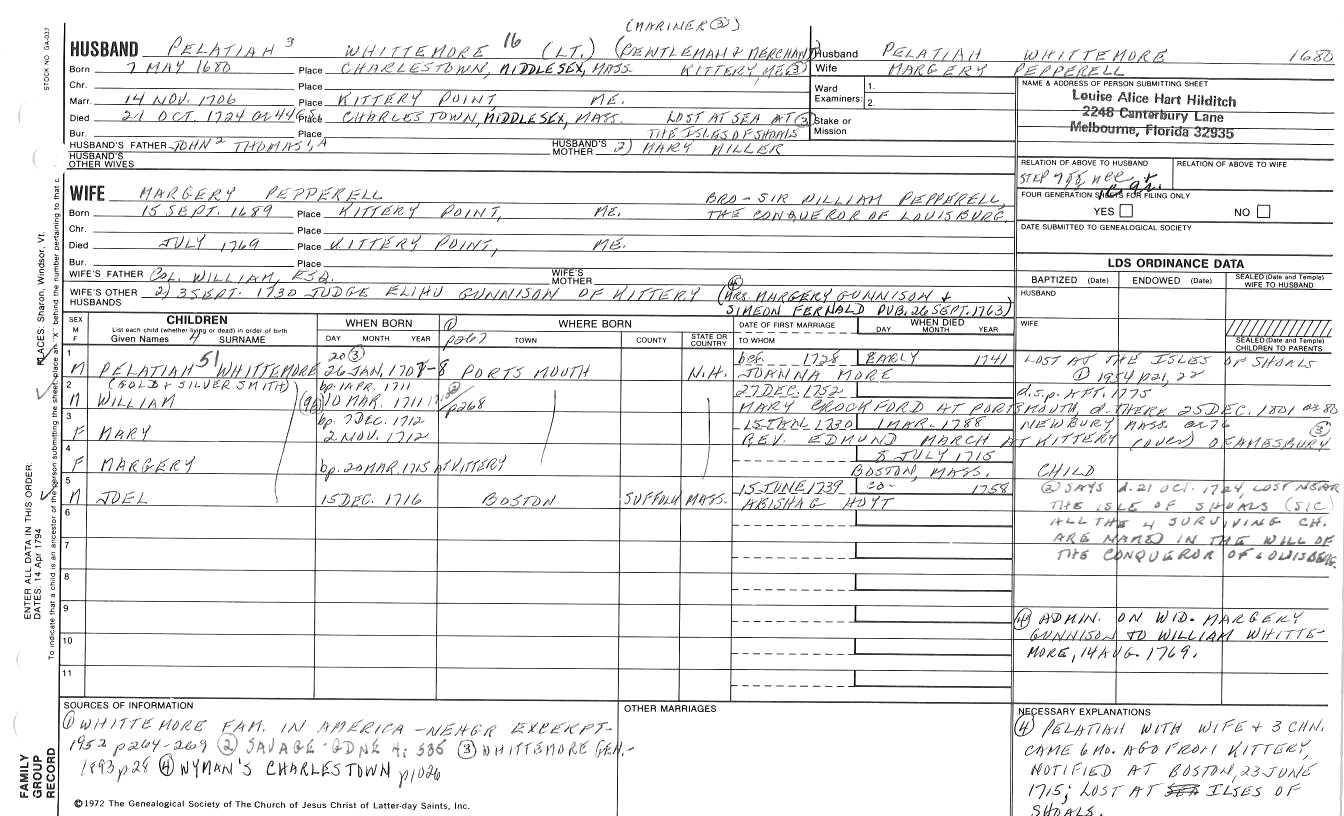 (MARINER ③)
STOCK NO. GA-033
HUSBAND PELATIAH 3 WHITTEMORE 16 (LT.) (GENTLEMAN & MERCHANT)
Born 7 MAY 1680 Place CHARLESTOWN, MIDDLESEX, MASS. KITTERY, ME. ③
Chr. Place
Marr. 14 NOV. 1706 Place KITTERY POINT, ME.
Died 21 OCT. 1724 OR Place CHARLESTOWN, MIDDLESEX, MASS. LOST AT SEA AT ③
Bur. Place THE ISLES OF SHOALS
HUSBAND'S FATHER JOHN 2 THOMAS 1, A HUSBAND'S MOTHER 2) MARY MILLER
HUSBAND'S OTHER WIVES
Husband PELATIAH WHITTEMORE 1680
Wife MARGERY PEPPERELL
Ward Examiners: 1. 2.
Stake or Mission
NAME & ADDRESS OF PERSON SUBMITTING SHEET
Louise Alice Hart Hilditch
2248 Canterbury Lane
Melbourne, Florida 32935
RELATION OF ABOVE TO HUSBAND RELATION OF ABOVE TO WIFE
STEP
FOUR GENERATION SHEETS FOR FILING ONLY
YES NO
DATE SUBMITTED TO GENEALOGICAL SOCIETY
WIFE MARGERY PEPPERELL BRO - SIR WILLIAM PEPPERELL,
Born 15 SEPT. 1689 Place KITTERY POINT, ME. THE CONQUEROR OF LOUISBURG,
Chr. Place
Died JULY 1769 Place KITTERY POINT, ME.
Bur. Place
WIFE'S FATHER COL. WILLIAM, ESQ. WIFE'S MOTHER
WIFE'S OTHER HUSBANDS 2) 3 SEPT. 1730 JUDGE ELIHU GUNNISON OF KITTERY ④ (MRS. MARGERY GUNNISON &
SIMEON FERNALD PUB. 26 SEPT. 1763)
LDS ORDINANCE DATA
BAPTIZED (Date) ENDOWED (Date) SEALED (Date and Temple) WIFE TO HUSBAND
HUSBAND
WIFE
SEALED (Date and Temple) CHILDREN TO PARENTS
SEX M F CHILDREN List each child (whether living or dead) in order of birth Given Names 4 SURNAME
WHEN BORN DAY MONTH YEAR
① p267 WHERE BORN TOWN COUNTY STATE OR COUNTRY
DATE OF FIRST MARRIAGE TO WHOM
WHEN DIED DAY MONTH YEAR
1 20 ③ bef. 1728 EARLY 1741 LOST AT THE ISLES OF SHOALS
M PELATIAH 51 WHITTEMORE 26 JAN. 1707-8 PORTSMOUTH N.H. JOANNA MORE ① 1954 p21, 22
2 (GOLD & SILVER SMITH) bp. 1 APR. 1711 ② 27 DEC. 1752 d.s.p. APT. 1775
M WILLIAM 10 MAR. 1711 p268 MARY CROCKFORD AT PORTSMOUTH, d. THERE 25 DEC. 1801
3 bp. 7 DEC. 1712 1730 1 MAR. 1788 NEWBURY MASS. OR 76 ③
F MARY 2 NOV. 1712 REV. EDMUND MARCH AT KITTERY (OVER) OF AMESBURY
4 8 JULY 1715
F MARGERY bp. 20 MAR. 1715 AT KITTERY BOSTON, MASS. CHILD
5 15 JUNE 1739 1758
M JOEL 15 DEC. 1716 BOSTON SUFFOLK MASS. ABISHAG HOYT
② SAYS d. 21 OCT. 1724, LOST NEAR
THE ISLE OF SHOALS (SIC)
ALL THE 4 SURVIVING CH.
ARE NAMED IN THE WILL OF
THE CONQUEROR OF LOUISBURG.
6
7
8
9
10
11
④ ADMIN. ON WID. MARGERY
GUNNISON TO WILLIAM WHITTE-
MORE, 14 AUG. 1769.
SOURCES OF INFORMATION
① WHITTEMORE FAM. IN AMERICA - NEHGR EXCERPT-
1952 p264-269 ② SAVAGE - GDNE 4: 535 ③ WHITTEMORE GEN. -
1893 p28 ④ WYMAN'S CHARLESTOWN p1026
OTHER MARRIAGES
NECESSARY EXPLANATIONS
④ PELATIAH WITH WIFE & 3 CHN.
CAME 6 MO. AGO FROM KITTERY,
NOTIFIED AT BOSTON, 23 JUNE
1715; LOST AT ILSES OF
SHOALS.
©1972 The Genealogical Society of The Church of Jesus Christ of Latter-day Saints, Inc.
FAMILY GROUP RECORD
ENTER ALL DATA IN THIS ORDER:
DATES: 14 Apr 1794
PLACES: Sharon, Windsor, Vt.
To indicate that a child is an ancestor of the person submitting the sheet, place an "X" behind the number pertaining to that c